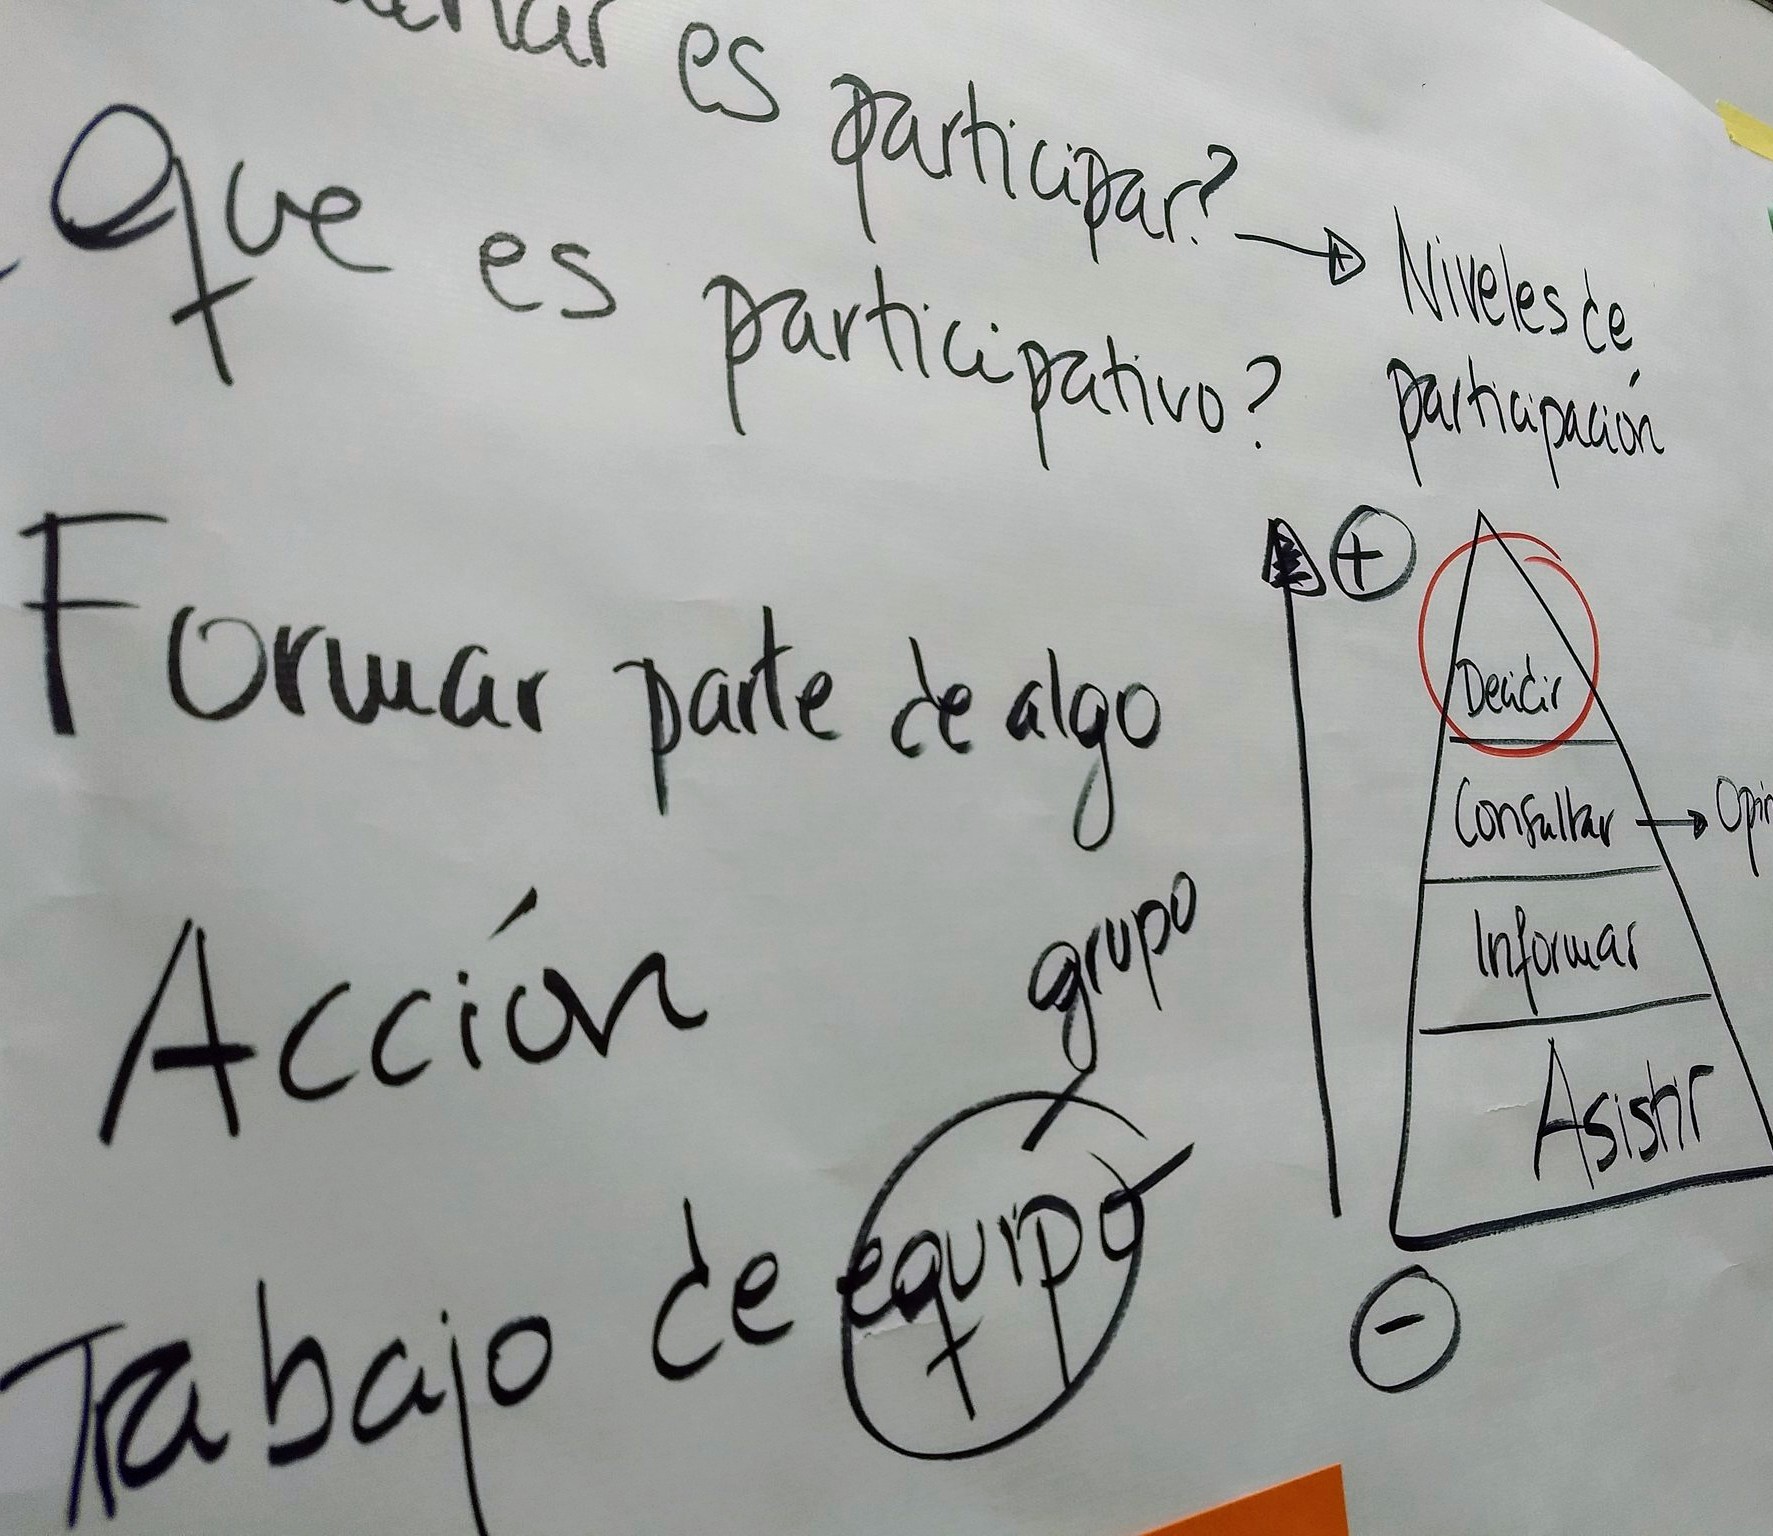 es participar?
Que es participativo?
Niveles de
participación
Formar parte de algo
Acción
grupo
Trabajo de equipo
+
Decidir
Consultar
Informar
Asistir
-